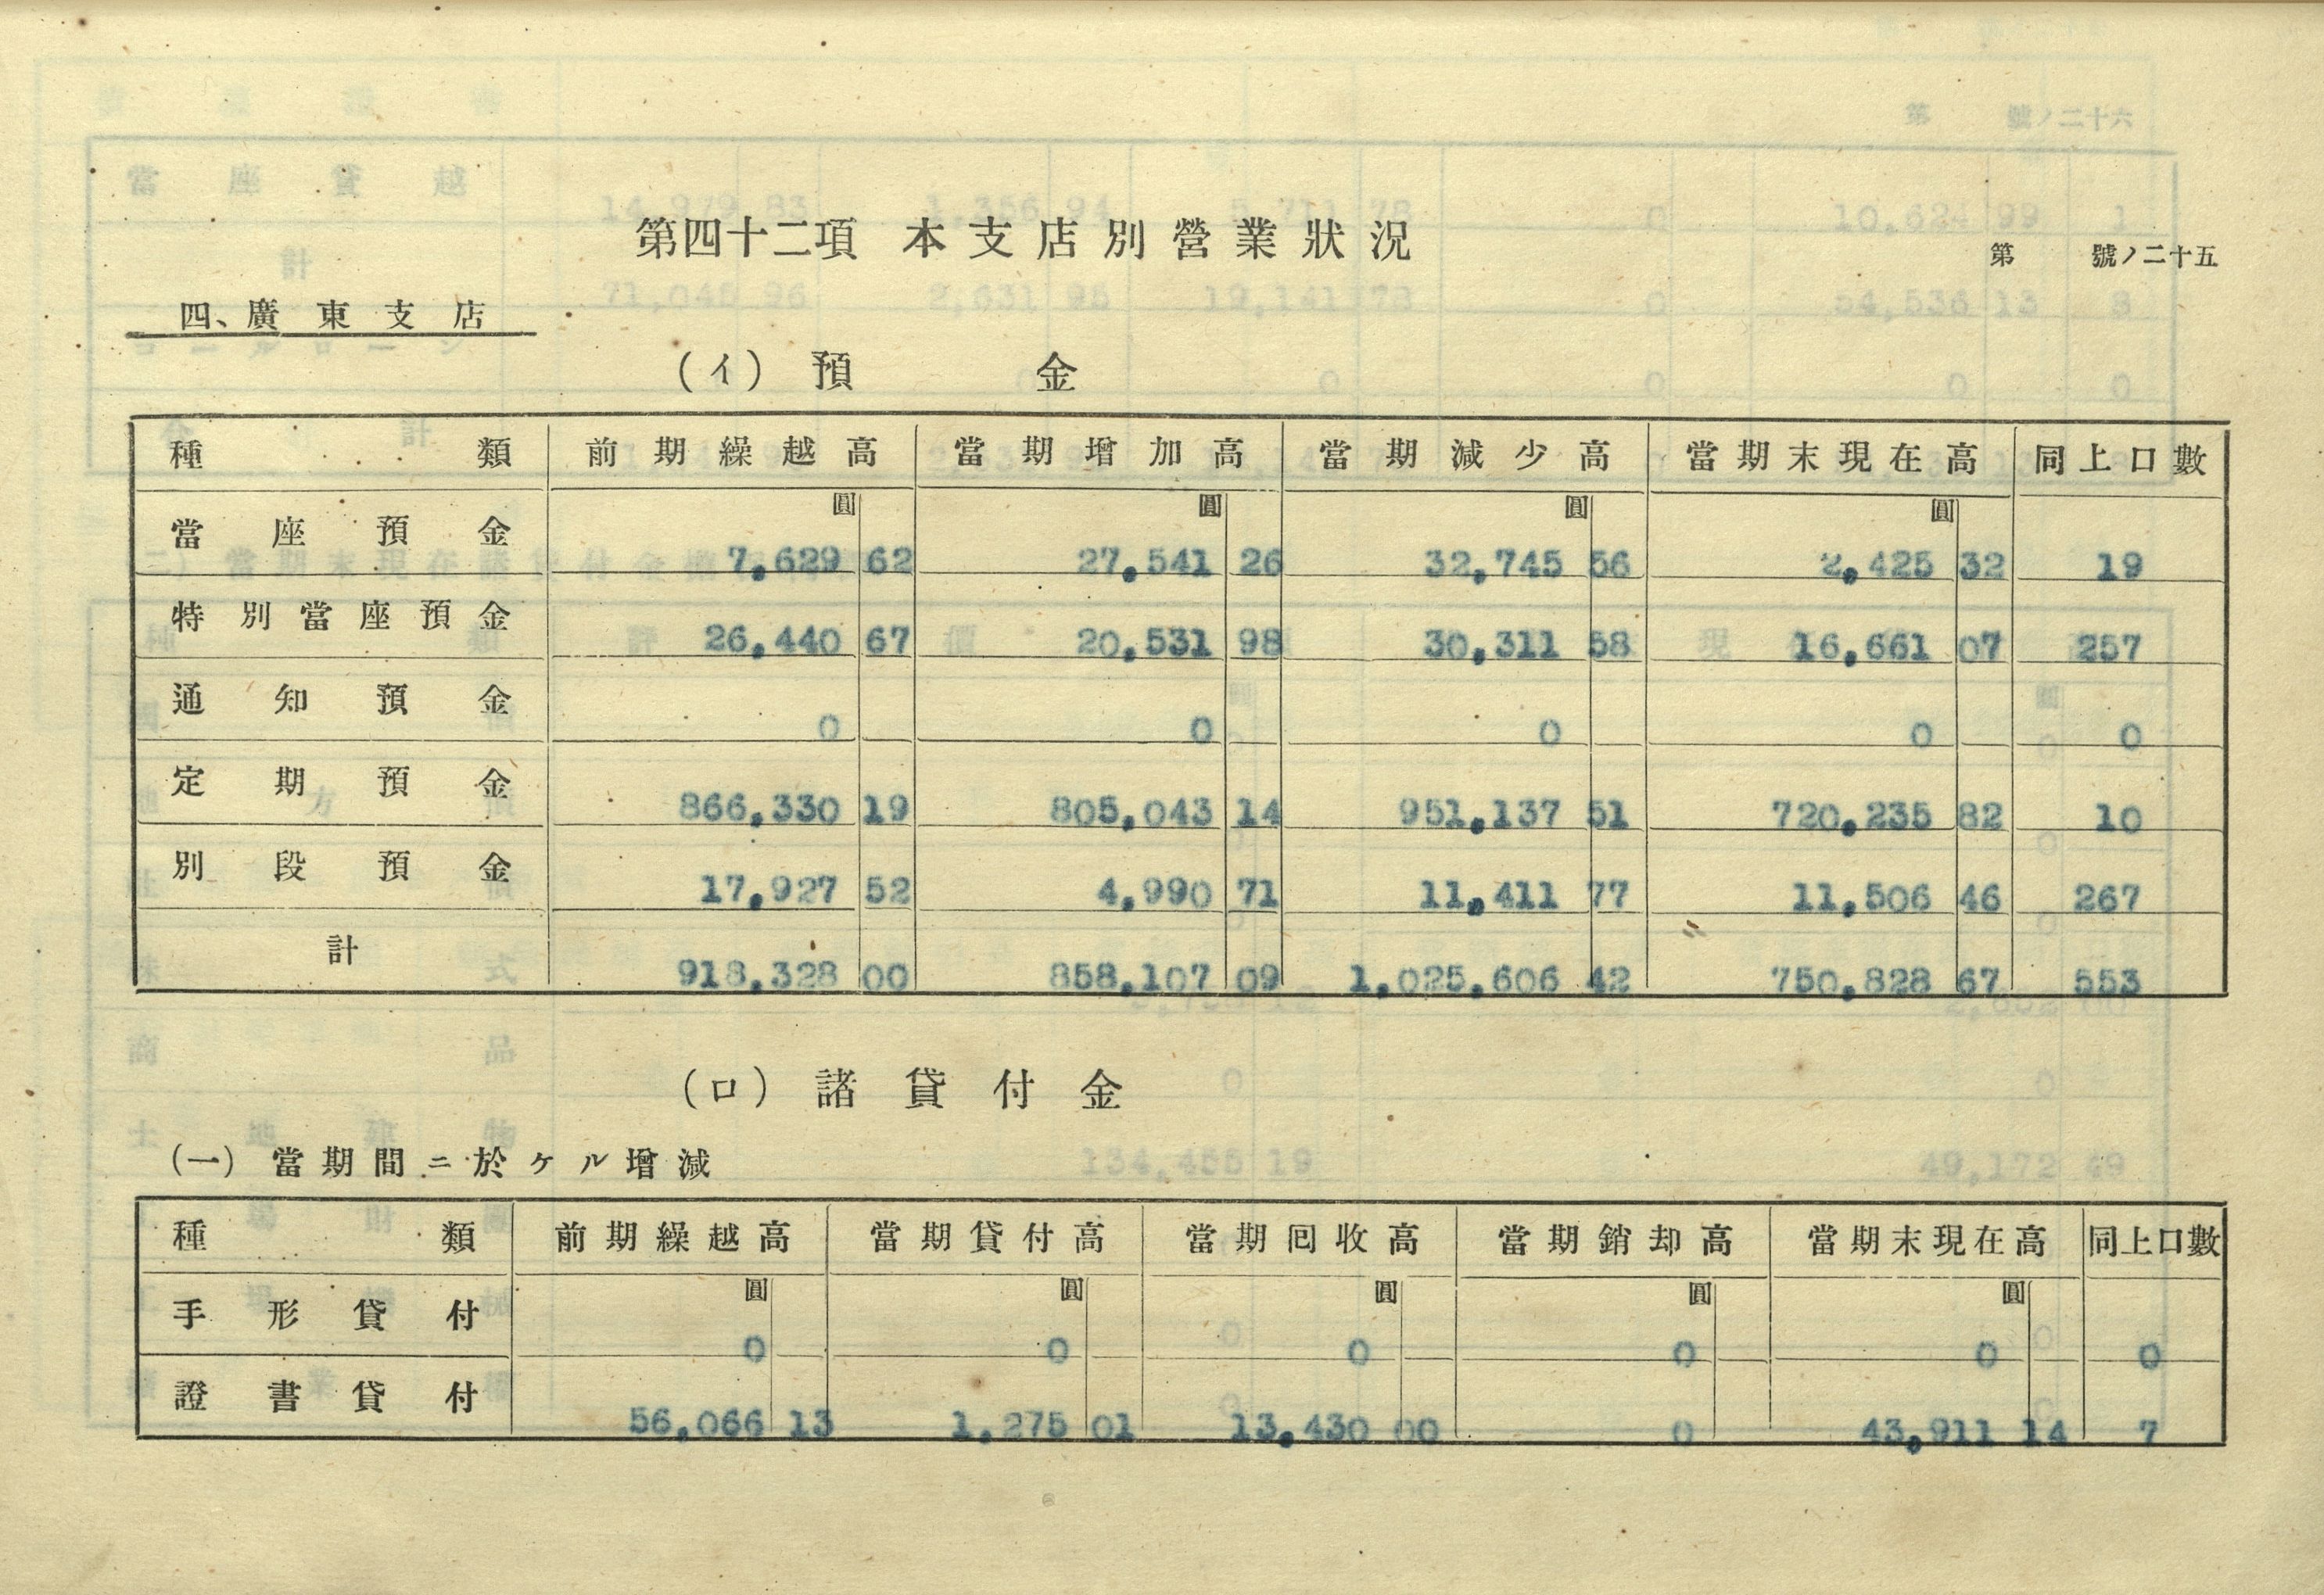 第四十二項 本支店別營業狀況
第 號ノ二十五
四、廣東支店
(イ) 預金
種類 前期繰越高 當期增加高 當期減少高 當期末現在高 同上口數
圓 圓 圓 圓
當座預金 7,629 62 27,541 26 32,745 56 2,425 32 19
特別當座預金 26,440 67 20,531 98 30,311 58 16,661 07 257
通知預金 0 0 0 0 0
定期預金 866,330 19 805,043 14 951,137 51 720,235 82 10
別段預金 17,927 52 4,990 71 11,411 77 11,506 46 267
計 918,328 00 858,107 09 1,025,606 42 750,828 67 553
(ロ) 諸貸付金
(一) 當期間ニ於ケル增減
種類 前期繰越高 當期貸付高 當期回收高 當期銷却高 當期末現在高 同上口數
圓 圓 圓 圓 圓
手形貸付 0 0 0 0 0 0
證書貸付 56,066 13 1,275 01 13,430 00 0 43,911 14 7